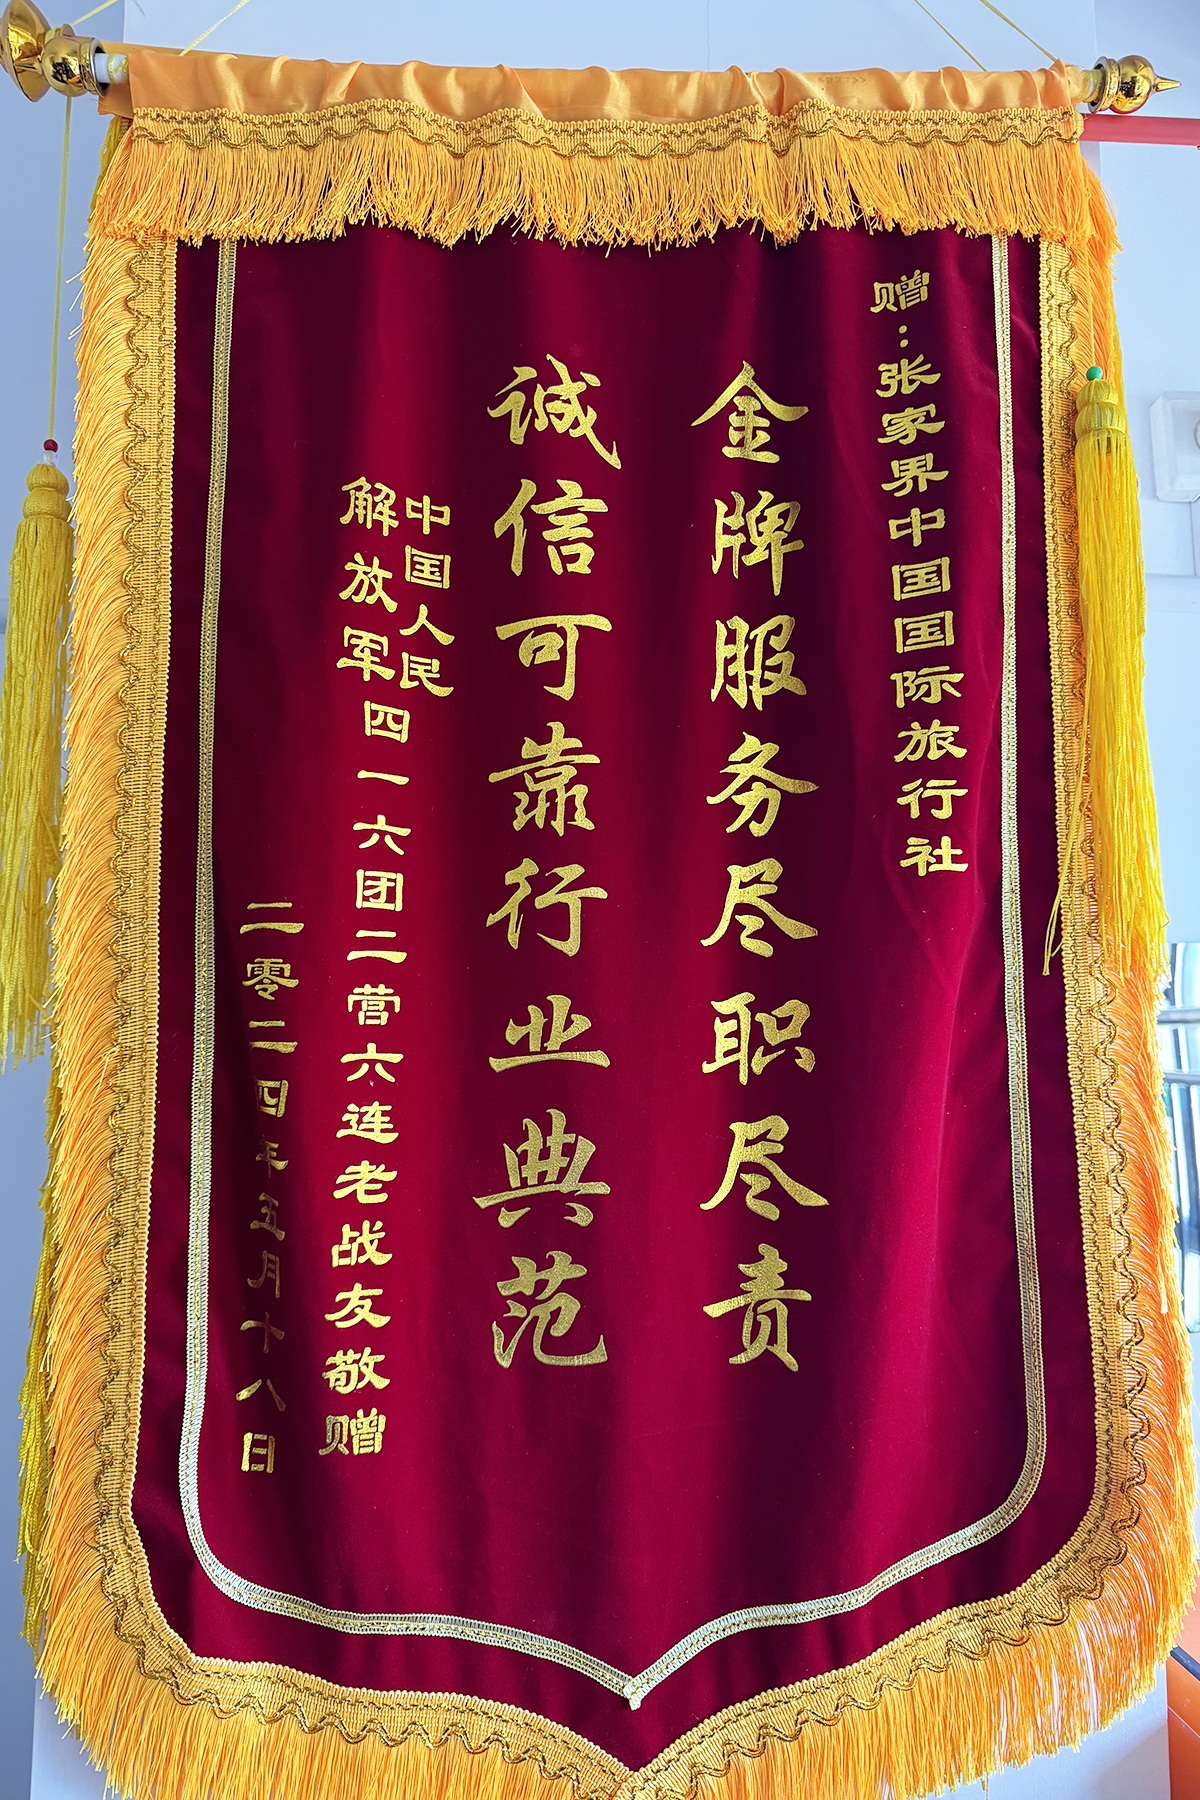 赠：张家界中国国际旅行社
金牌服务尽职尽责
诚信可靠行业典范
中国人民
解放军四一六团二营六连老战友敬赠
二零二四年五月十八日